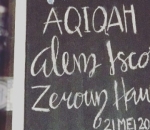 AQIQAH
alem Isco
Zeroun Hau
21 MEI 20